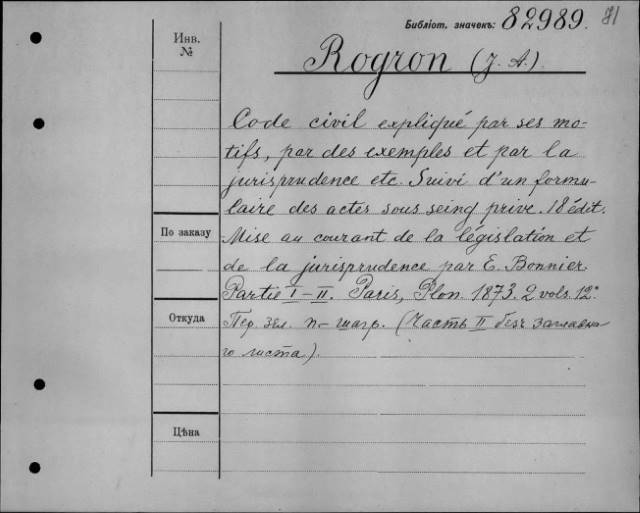 Библіот. значекъ: 82989. 81
Инв.
№
Rogron (J. A.)
Code civil expliqué par ses mo-
tifs, par des exemples et par la
jurisprudence etc. Suivi d'un formu-
laire des actes sous seing privé. 18 édit.
По заказу
Mise au courant de la législation et
de la jurisprudence par E. Bonnier.
Partie I-II. Paris, Plon. 1873. 2 vols. 12°
Откуда
Пер. зел. п.-шагр. (Часть II безъ заглавна-
го листа).
Цѣна